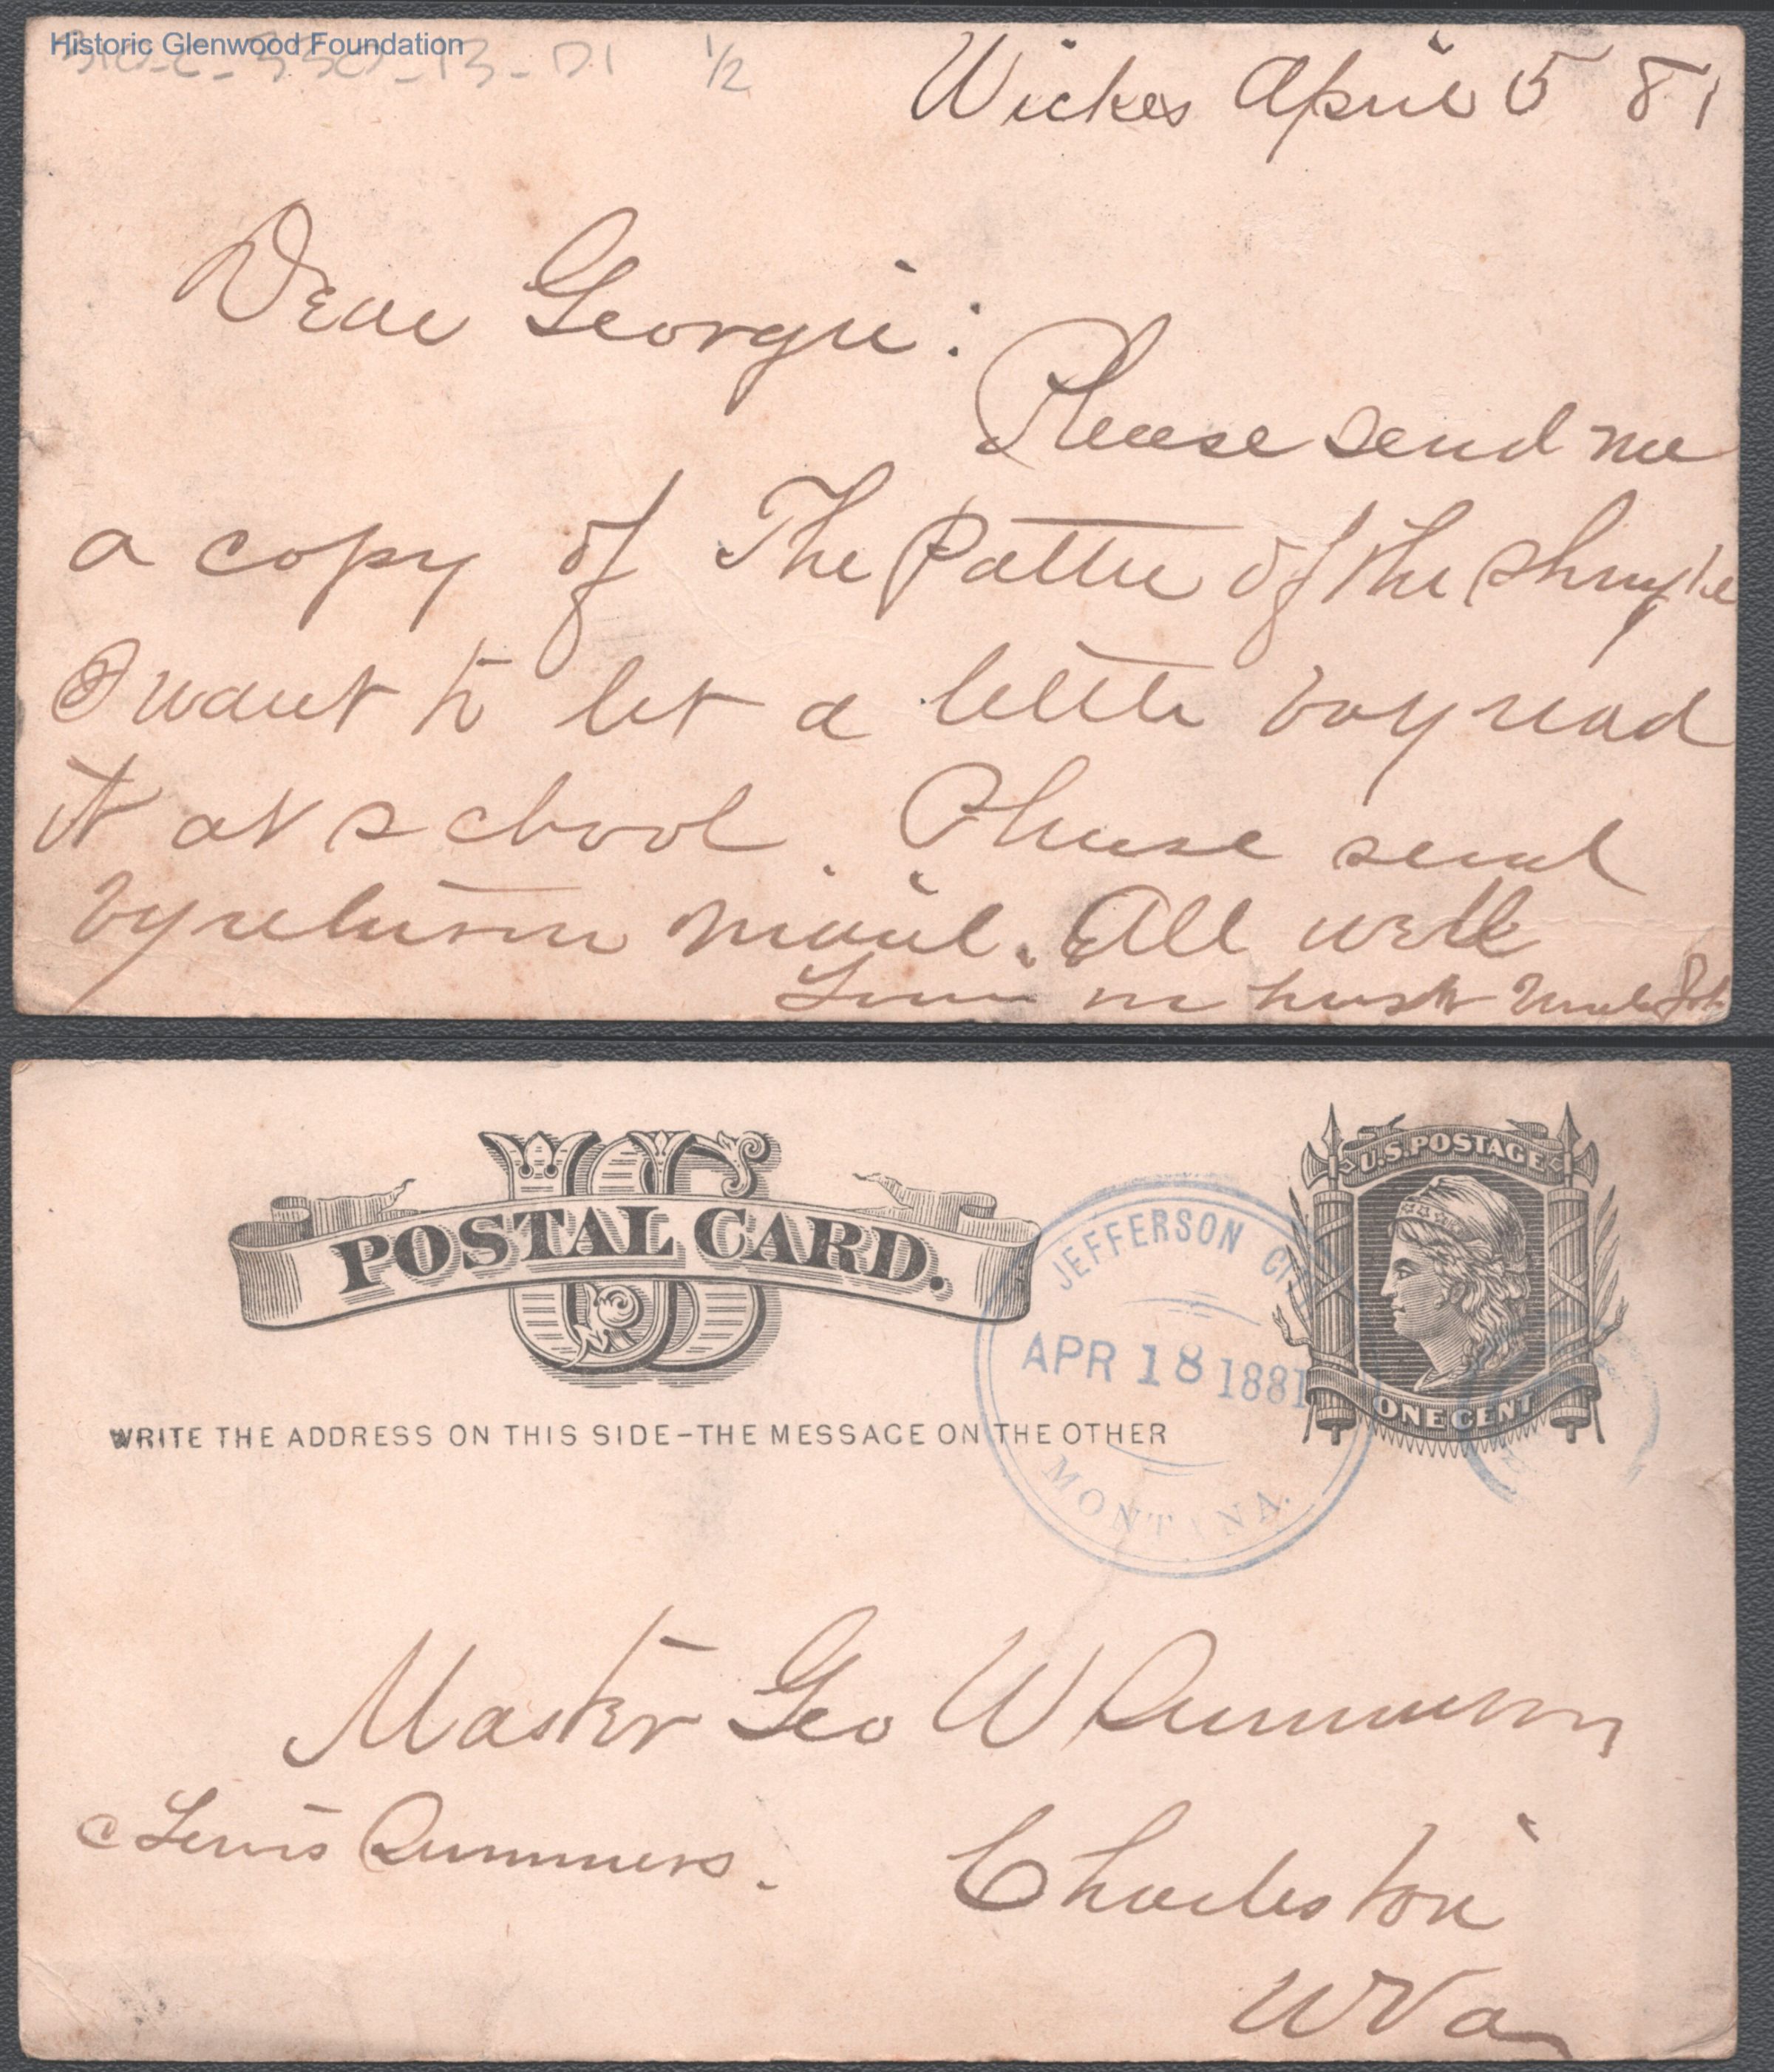 Historic Glenwood Foundation
1/2
Wickes April 5 81
Dear Georgie:
Please send me
a copy of The Battle of the
I want to let a little boy read
it at school. Please send
by return mail. All well
Yours in haste Uncle
US
POSTAL CARD.
WRITE THE ADDRESS ON THIS SIDE-THE MESSAGE ON THE OTHER
U.S. POSTAGE
ONE CENT
JEFFERSON CITY
APR 18 1881
MONTANA.
Master Geo W Summers
C Lewis Summers.
Charleston
W Va